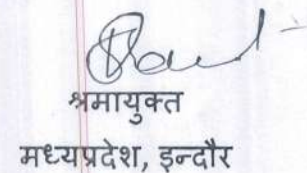 श्रमायुक्त
मध्यप्रदेश, इन्दौर